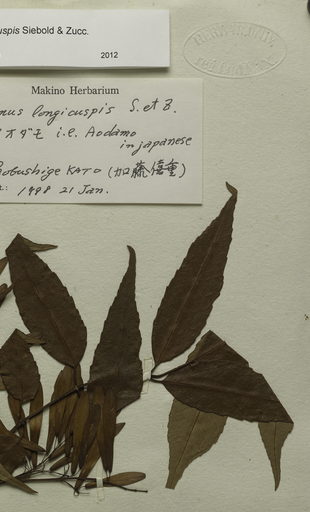 uspis Siebold & Zucc.
2012
Makino Herbarium
nus longicuspis S. et Z.
オダモ i.e. Aodamo
in japanese
obushige KATO (加藤僖重)
1998 21 Jan.